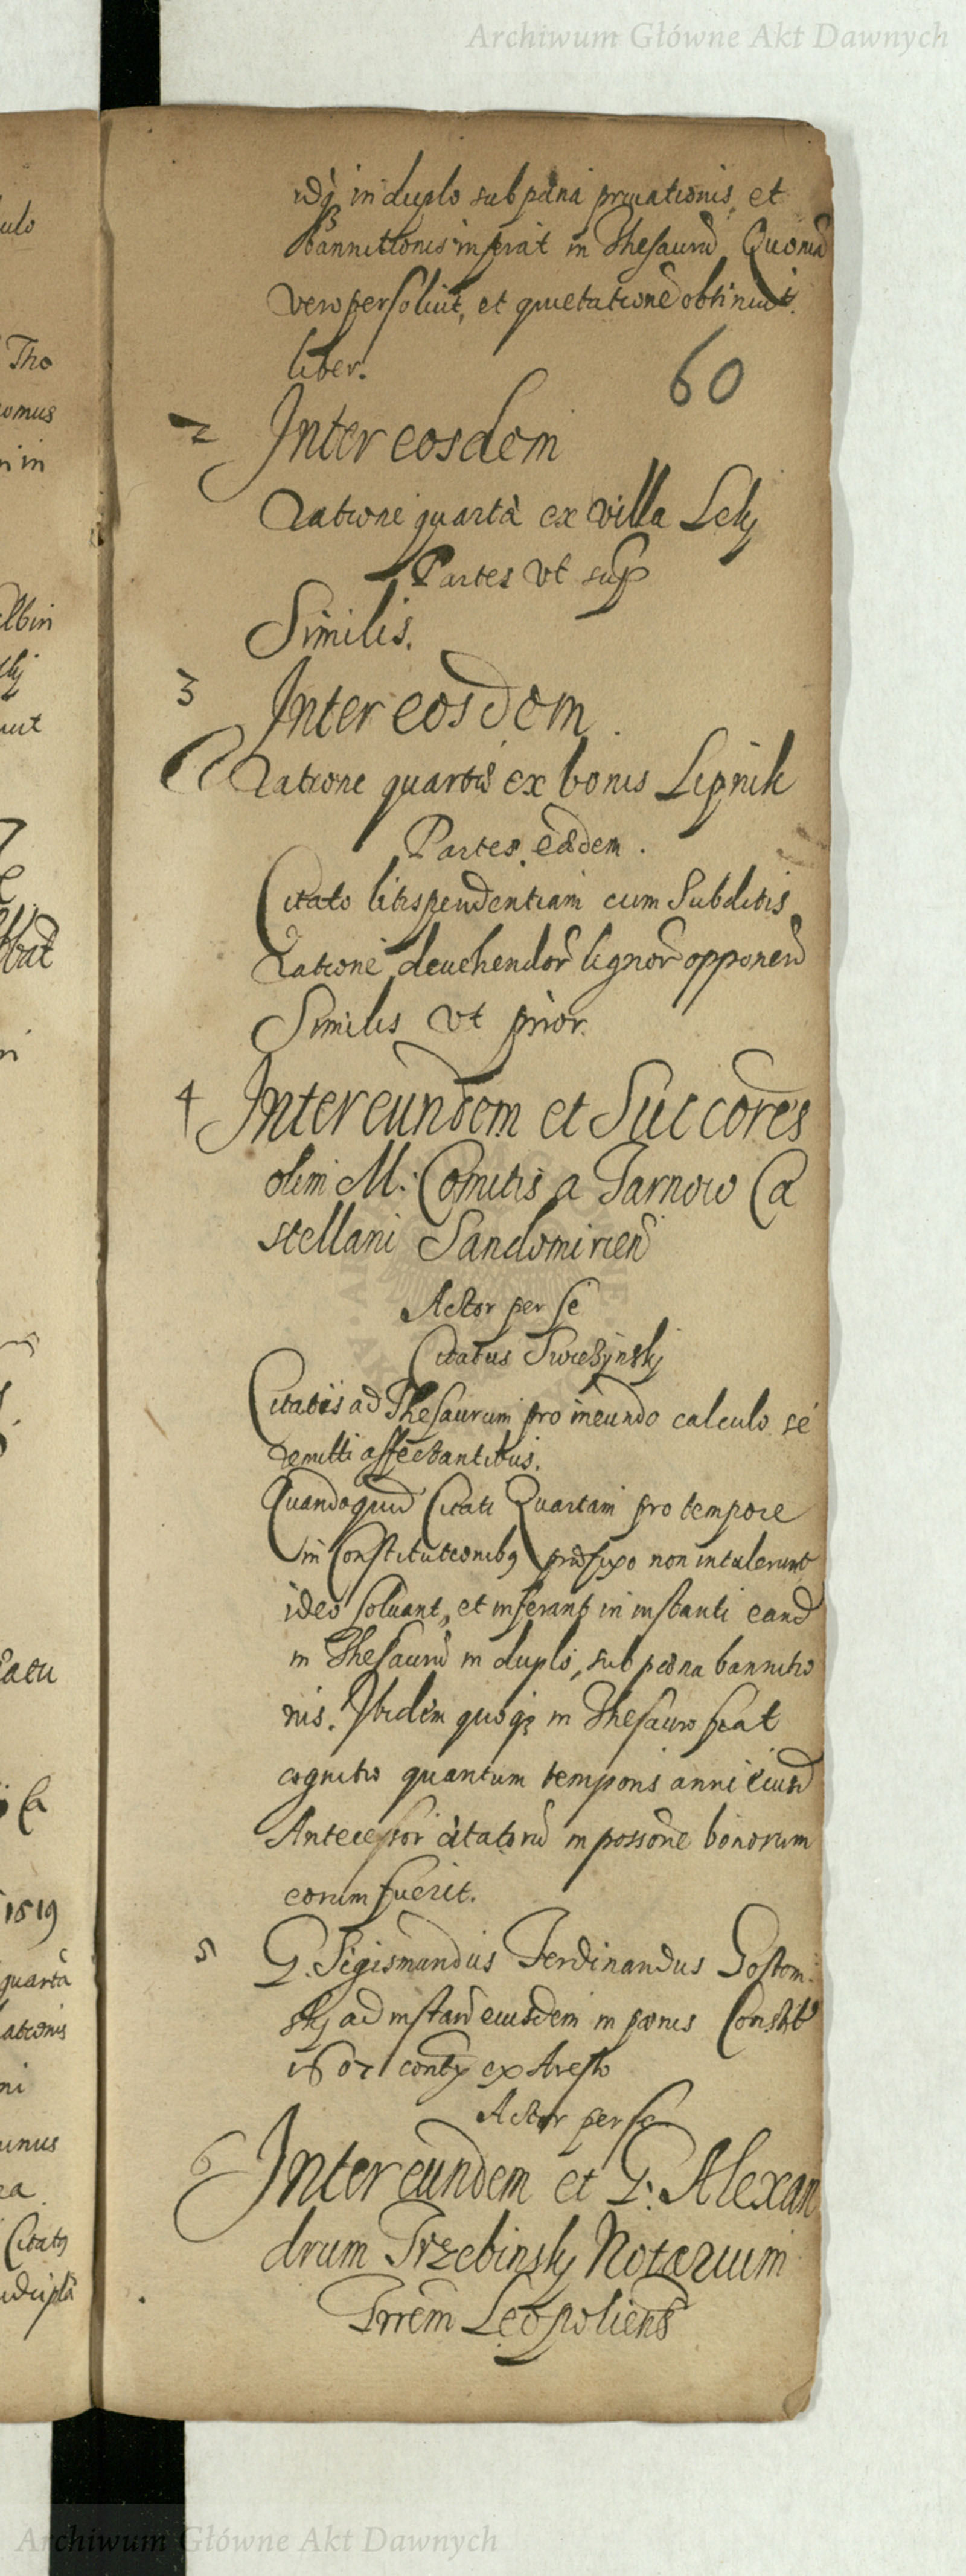 Archiwum Główne Akt Dawnych
idq́ in duplo sub pæna priuationis, et
Bannitionis inferat in Thesaurū Quoniā
vero persoluit, et quietationē obtinuit.
liber.
60
2 Inter eosdem
Ratione quartæ ex villa Leky
Partes vt sup
Similis.
3 Inter eosdem
Ratione quartæ ex bonis Lipnik
Partes eædem.
Citato litispendentiam cum Subditis
Ratione deuehendor̄ lignor̄ opponen̄
Similis vt prior.
4 Inter eundem et Succores
olim M: Comitis a Tarnow Ca
stellani Sandomirien̄
Actor per se
Citatus Swiezynsky
Citatis ad Thesaurum pro ineundo calculo sé
remitti affectantibus.
Quandoquid̄ Citati Quartam pro tempore
in Constitutionibq præfixo non intulerunt
ideo soluant, et inferant in instanti eand̄
in Thesaurū in duplo, sub pœna bannitio
nis. Ibidem quoqȝ in Thesauro fiat
cognitio quantum temporis anni eiusd̄
Antecessor citatorū in possone bonorum
eorum fuerit.
5 G. Sigismundus Ferdinandus Gostom:
sky ad instan̄ eiusdem in pœnis Constit
contȝ ex Aresto
Actor per se
6 Inter eundem et G: Alexan
drum Trzebinsky Notarium
Trrēm Leopoliens̄
ulo
Tho
omus
n in
lbin
uut
ni
1519
quarta
ationis
ni
unus
ea
Citatq
Archiwum Główne Akt Dawnych